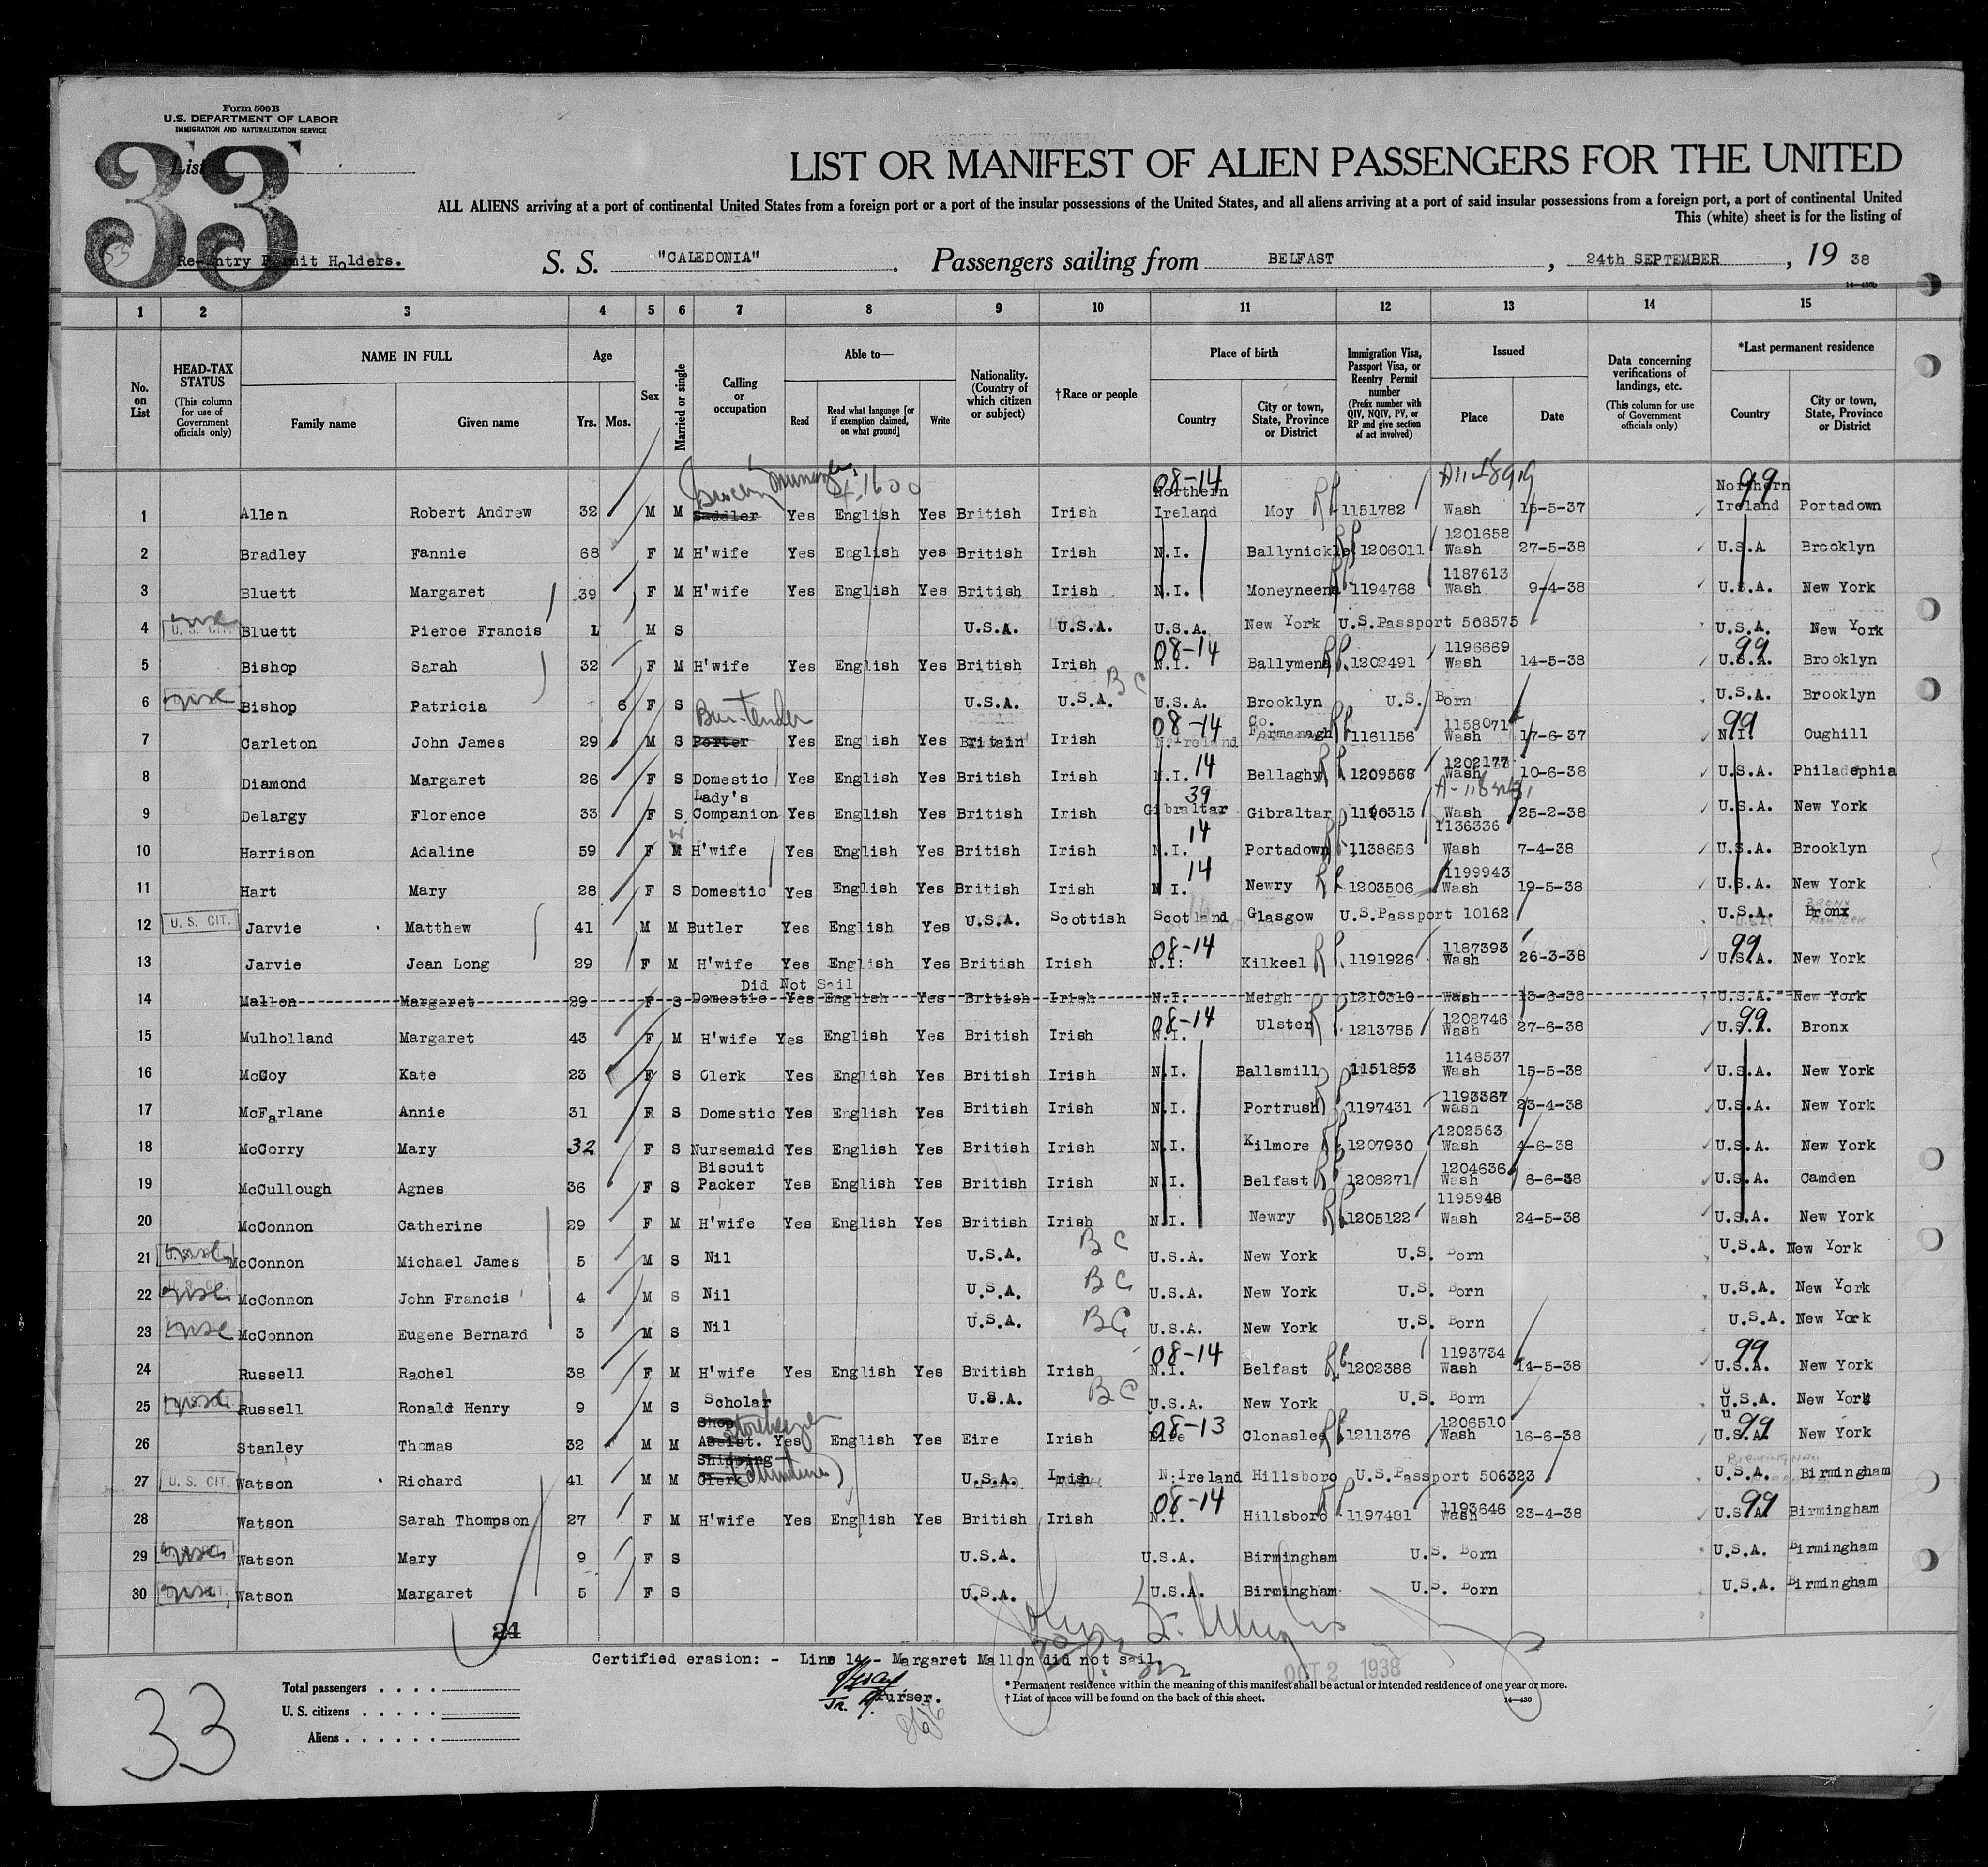 Form 500B
U.S. DEPARTMENT OF LABOR
IMMIGRATION AND NATURALIZATION SERVICE
33
List
LIST OR MANIFEST OF ALIEN PASSENGERS FOR THE UNITED
ALL ALIENS arriving at a port of continental United States from a foreign port or a port of the insular possessions of the United States, and all aliens arriving at a port of said insular possessions from a foreign port, a port of continental United
This (white) sheet is for the listing of
Re-Entry Permit Holders. S. S. "CALEDONIA" . Passengers sailing from BELFAST , 24th SEPTEMBER , 19 38
1 2 3 4 5 6 7 8 9 10 11 12 13 14 15
No. on List HEAD-TAX STATUS (This column for use of Government officials only) NAME IN FULL Family name Given name Age Yrs. Mos. Sex Married or single Calling or occupation Able to— Read Read what language [or if exemption claimed, on what ground] Write Nationality. (Country of which citizen or subject) †Race or people Place of birth Country City or town, State, Province or District Immigration Visa, Passport Visa, or Reentry Permit number (Prefix number with QIV, NQIV, PV, or RP and give section of act involved) Issued Place Date Data concerning verifications of landings, etc. (This column for use of Government officials only) *Last permanent residence Country City or town, State, Province or District
1 Allen Robert Andrew 32 M M Saddler Yes English Yes British Irish 08-14 Northern Ireland Moy RP 1151782 Wash 15-5-37 99 Northern Ireland Portadown
2 Bradley Fannie 68 F M H'wife Yes English yes British Irish N.I. Ballynickle RP 1206011 1201658 Wash 27-5-38 U.S.A Brooklyn
3 Bluett Margaret 39 F M H'wife Yes English Yes British Irish N.I. Moneyneena RP 1194768 1187613 Wash 9-4-38 U.S.A. New York
4 U. S. CIT. Bluett Pierce Francis 1 M S U.S.A. U.S.A. U.S.A. New York U.S.Passport 508575 U.S.A. New York
5 Bishop Sarah 32 F M H'wife Yes English Yes British Irish 08-14 N.I. Ballymena RP 1202491 1196669 Wash 14-5-38 99 U.S.A. Brooklyn
6 Bishop Patricia 6 F S U.S.A. U.S.A. BC U.S.A. Brooklyn U.S. Born U.S.A. Brooklyn
7 Carleton John James 29 M S Porter Bar-tender Yes English Yes Britain Irish 08-14 N.Ireland Co. Fermanagh RP 1161156 1158071 Wash 17-6-37 99 N.I. Oughill
8 Diamond Margaret 26 F S Domestic Yes English Yes British Irish 14 N.I. Bellaghy RP 1209568 1202177 Wash 10-6-38 U.S.A. Philadephia
9 Delargy Florence 33 F S Lady's Companion Yes English Yes British Irish 39 Gibraltar Gibraltar 1190313 Wash 25-2-38 U.S.A. New York
10 Harrison Adaline 59 F M H'wife Yes English Yes British Irish 14 N.I. Portadown RP 1138656 1136336 Wash 7-4-38 U.S.A. Brooklyn
11 Hart Mary 28 F S Domestic Yes English Yes British Irish 14 N I. Newry RP 1203506 1199943 Wash 19-5-38 U.S.A. New York
12 U. S. CIT. Jarvie Matthew 41 M M Butler Yes English Yes U.S.A. Scottish Scotland Glasgow U.S.Passport 10162 U.S.A. Bronx
13 Jarvie Jean Long 29 F M H'wife Yes English Yes British Irish 08-14 N.I. Kilkeel RP 1191926 1187393 Wash 26-3-38 99 U.S.A. New York
Did Not Sail
14 Mallon Margaret 29 F S Domestic Yes English Yes British Irish N.I. Meigh 1210310 Wash 13-6-38 U.S.A. New York
15 Mulholland Margaret 43 F M H'wife Yes English Yes British Irish 08-14 N.I. Ulster RP 1213785 1208746 Wash 27-6-38 99 U.S.A. Bronx
16 McCoy Kate 23 F S Clerk Yes English Yes British Irish N.I. Ballsmill RP 1151853 1148537 Wash 15-5-38 U.S.A. New York
17 McFarlane Annie 31 F S Domestic Yes English Yes British Irish N.I. Portrush RP 1197431 1193367 Wash 23-4-38 U.S.A. New York
18 McCorry Mary 32 F S Nursemaid Yes English Yes British Irish N.I. Kilmore RP 1207930 1202563 Wash 4-6-38 U.S.A. New York
19 McCullough Agnes 36 F S Biscuit Packer Yes English Yes British Irish N.I. Belfast RP 1208271 1204636 Wash 6-6-38 U.S.A. Camden
20 McConnon Catherine 29 F M H'wife Yes English Yes British Irish N.I. Newry RP 1205122 1195948 Wash 24-5-38 U.S.A. New York
21 McConnon Michael James 5 M S Nil U.S.A. BC U.S.A. New York U.S. Born U.S.A. New York
22 U. S. CIT. McConnon John Francis 4 M S Nil U.S.A. BC U.S.A. New York U.S. Born U.S.A. New York
23 McConnon Eugene Bernard 3 M S Nil U.S.A. BC U.S.A. New York U.S. Born U.S.A. New York
24 Russell Rachel 38 F M H'wife Yes English Yes British Irish 08-14 N.I. Belfast RP 1202388 1193734 Wash 14-5-38 99 U.S.A. New York
25 Russell Ronald Henry 9 M S Scholar U.S.A. BC U.S.A. New York U.S. Born U.S.A. New York
26 Stanley Thomas 32 M M Shop Assist. Storekeeper Yes English Yes Eire Irish 08-13 Eire Clonaslee RP 1211376 1206510 Wash 16-6-38 99 U.S.A. New York
27 U. S. CIT. Watson Richard 41 M M Shipping Clerk (furniture) U.S.A. Irish N.Ireland Hillsboro U.S.Passport 506323 U.S.A. Birmingham
28 Watson Sarah Thompson 27 F M H'wife Yes English Yes British Irish 08-14 N.I. Hillsboro RP 1197481 1193646 Wash 23-4-38 99 U.S.A. Birmingham
29 Watson Mary 9 F S U.S.A. U.S.A. Birmingham U.S. Born U.S.A. Birmingham
30 Watson Margaret 5 F S U.S.A. U.S.A. Birmingham U.S. Born U.S.A. Birmingham
24
Certified erasion: - Line 14 - Margaret Mallon did not sail.
Purser.
OCT 2 1938
Total passengers . . . .
U. S. citizens . . . . .
Aliens . . . . . .
* Permanent residence within the meaning of this manifest shall be actual or intended residence of one year or more.
† List of races will be found on the back of this sheet.
14—430
33